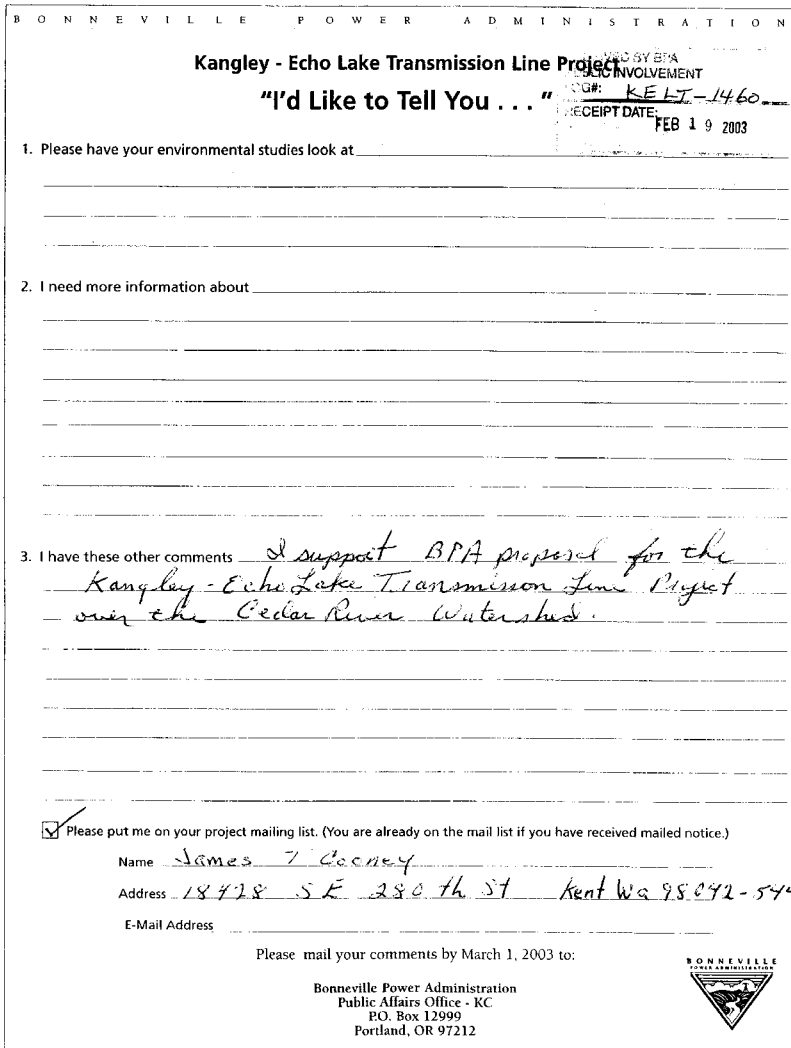 BONNEVILLE POWER ADMINISTRATION
Kangley - Echo Lake Transmission Line Project
"I'd Like to Tell You . . . "
BY BPA
INVOLVEMENT
KELT-1460
RECEIPT DATE:
FEB 19 2003
1. Please have your environmental studies look at
2. I need more information about
3. I have these other comments I support BPA proposal for the
Kangley-Echo Lake Transmisson Line Project
over the Cedar River Watershed.
Please put me on your project mailing list. (You are already on the mail list if you have received mailed notice.)
Name James T Cooney
Address 18428 SE 280th St Kent Wa 98042-54
E-Mail Address
Please mail your comments by March 1, 2003 to:
Bonneville Power Administration
Public Affairs Office - KC
P.O. Box 12999
Portland, OR 97212
BONNEVILLE
POWER ADMINISTRATION